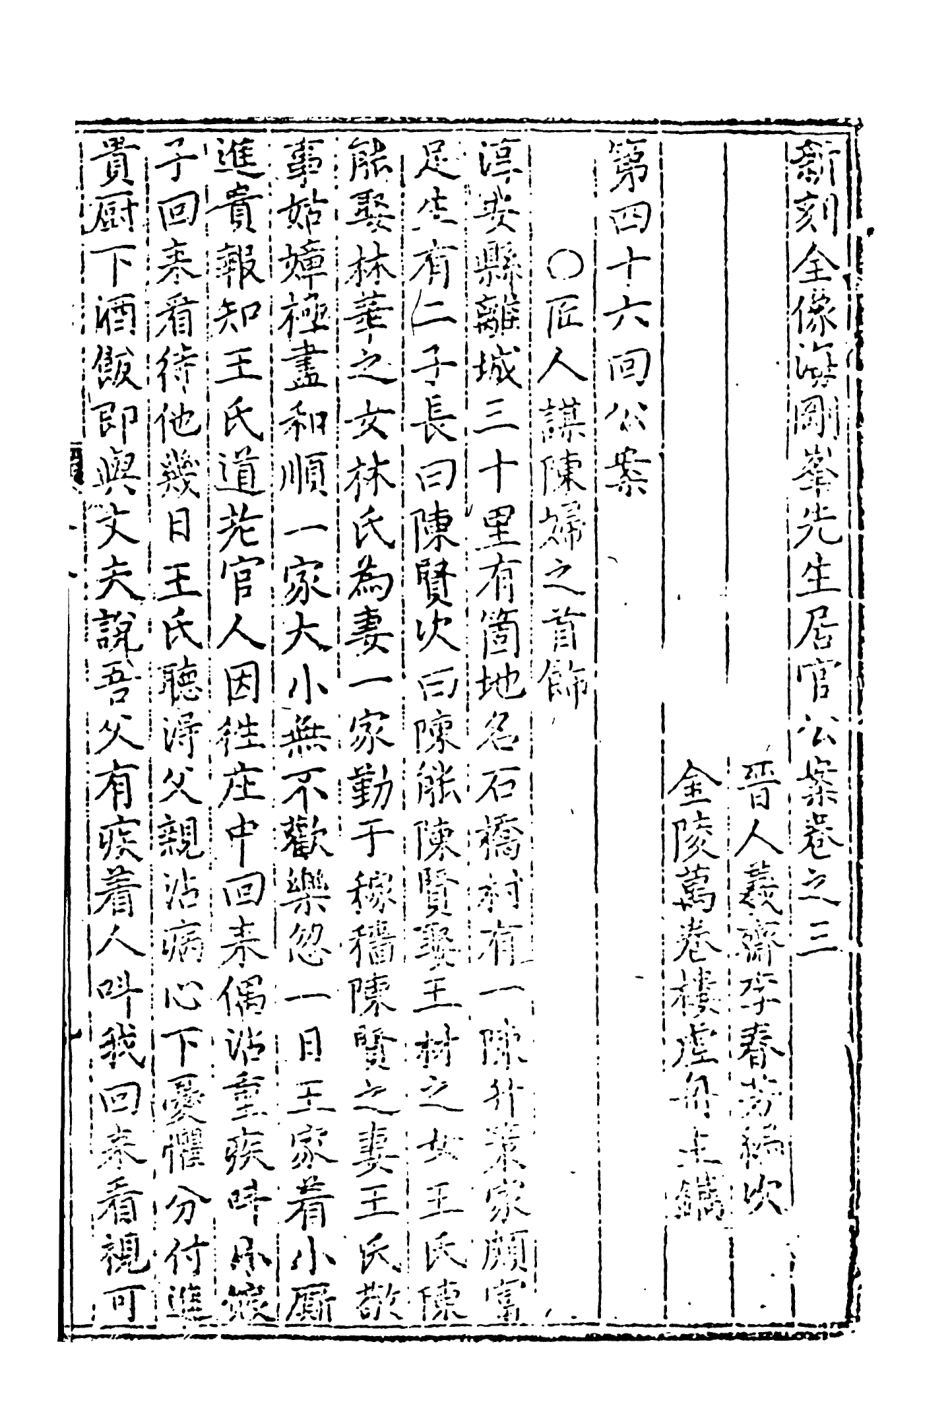 新刻全像海剛峯先生居官公案卷之三
晉人羲齋李春芳編次
金陵萬卷樓虛舟生鐫
第四十六回公案
○匠人謀陳婦之首飾
淳安縣離城三十里有箇地名石橋村有一陳升策家頗富
足生有二子長曰陳賢次曰陳能陳賢娶王村之女王氏陳
能娶林華之女林氏為妻一家勤于稼穡陳賢之妻王氏敬
事姑嫜極盡和順一家大小無不歡樂忽一日王家着小厮
進貴報知王氏道老官人因往庄中回来偶沾重疾呌小娘
子回来看待他幾日王氏聽得父親沾病心下憂懼分付進
貴厨下酒飯即與丈夫說吾父有疾着人呌我回来看視可